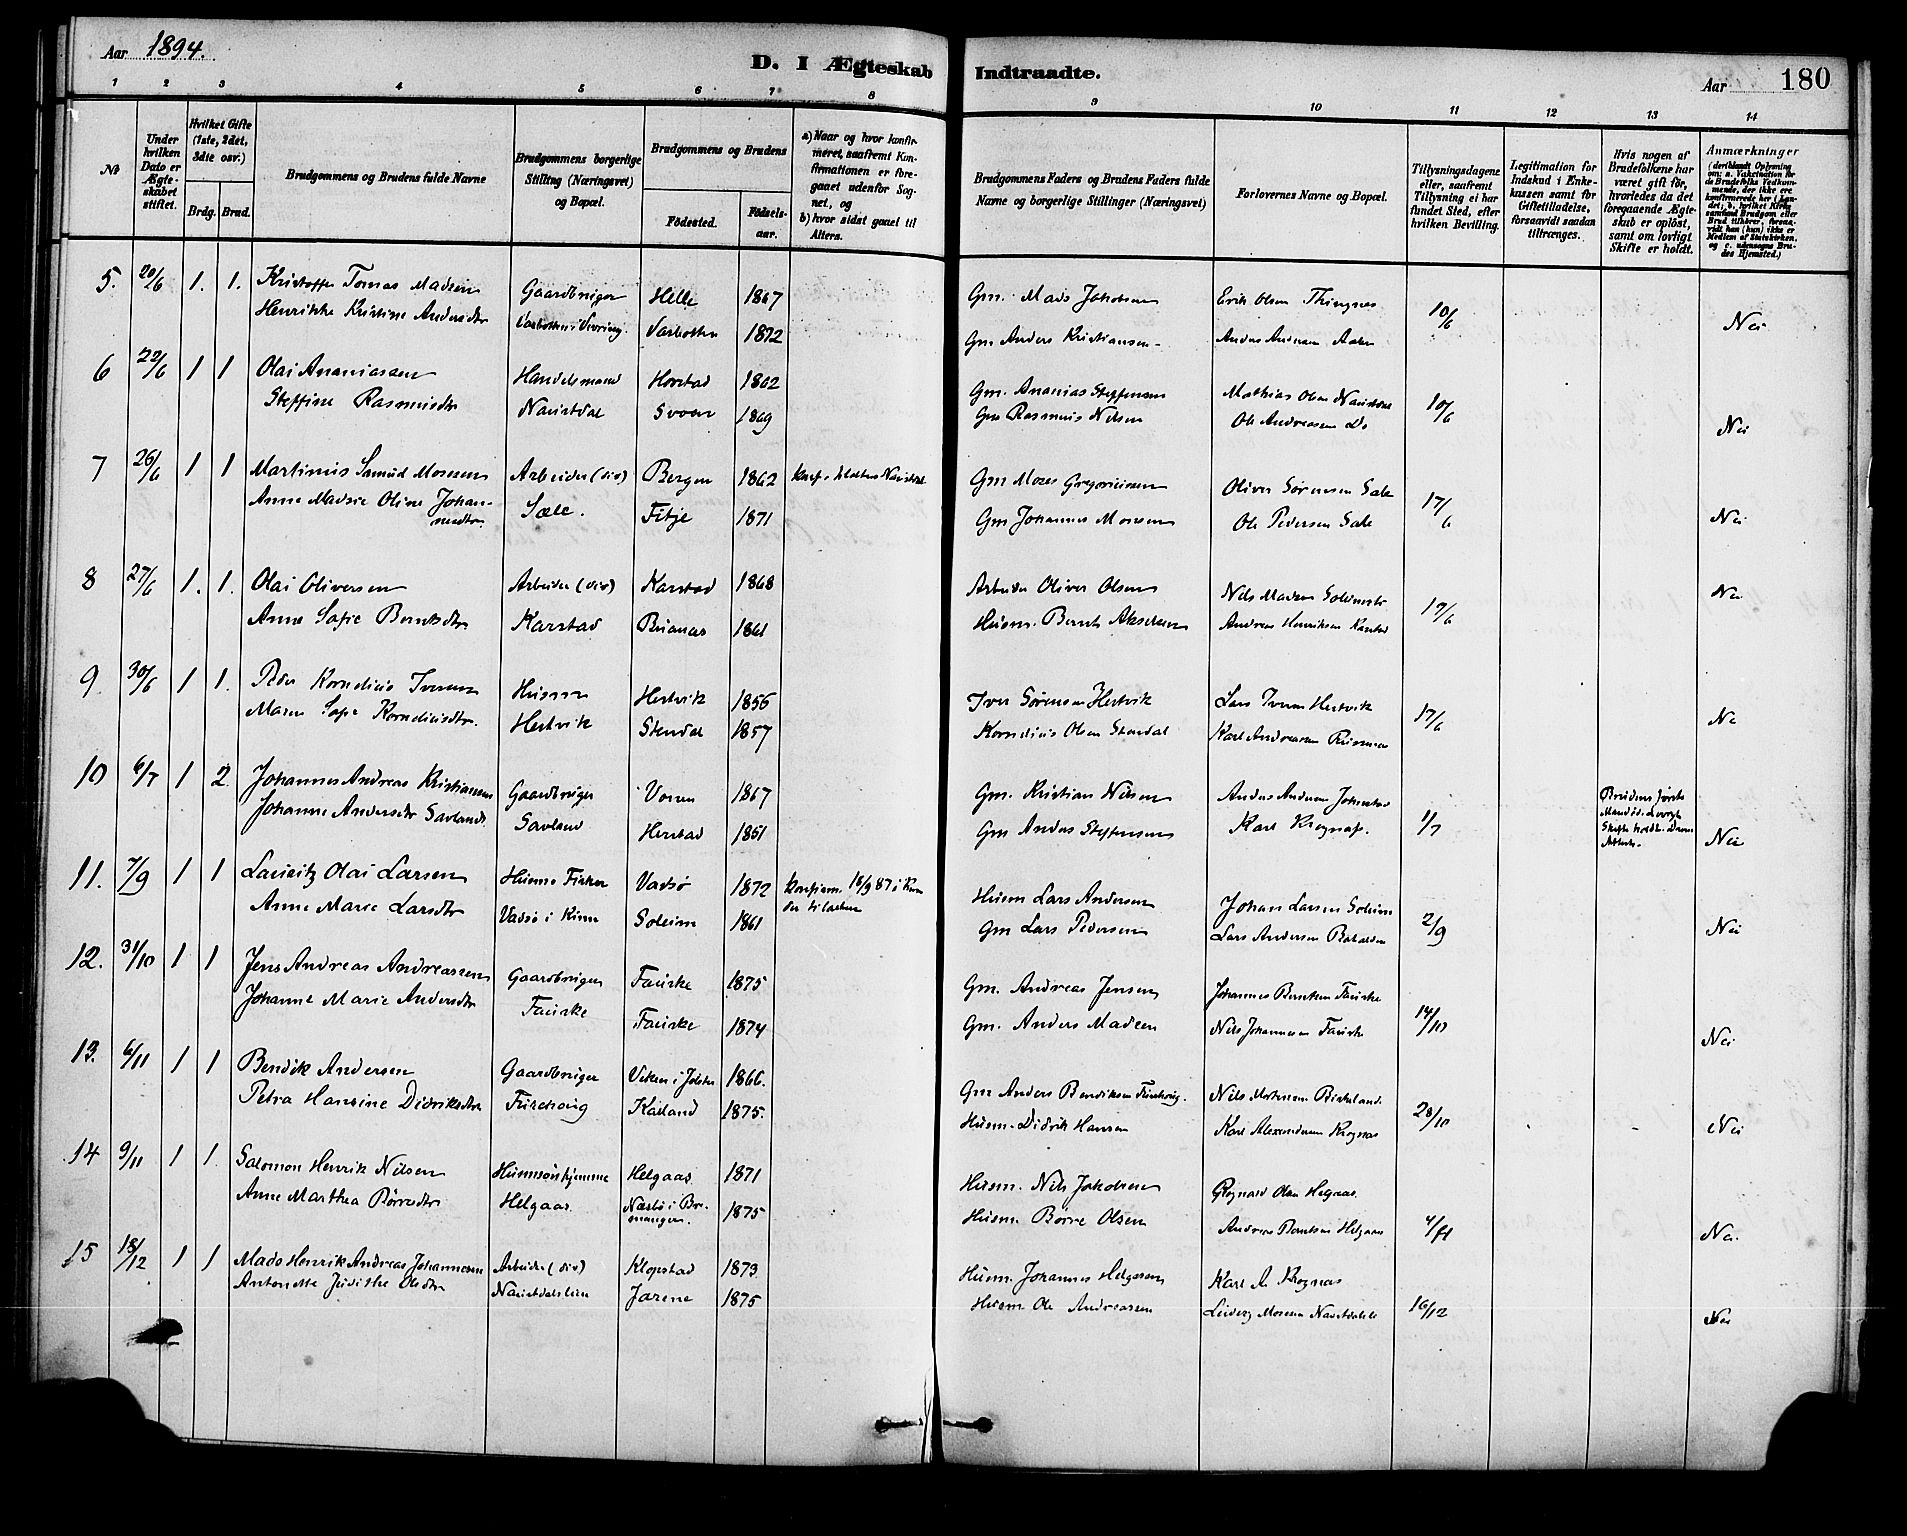 Aar 1894.
D. I Ægteskab Indtraadte.
Aar 180
1 2 3 4 5 6 7 8 9 10 11 12 13 14
No
Under hvilken Dato er Ægteskabet stiftet.
Hvilket Gifte (1ste, 2det, 3die osv.)
Brdg. Brud.
Brudgommens og Brudens fulde Navne
Brudgommens borgerlige Stilling (Næringsvei) og Bopæl.
Brudgommens og Brudens
Fødested.
Fødselsaar.
a) Naar og hvor konfirmeret, saafremt Konfirmationen er foregaaet udenfor Sognet, og
b) hvor sidst gaaet til Alters.
Brudgommens Faders og Brudens Faders fulde Navne og borgerlige Stillinger (Næringsvei)
Forlovernes Navne og Bopæl.
Tillysningsdagene eller, saafremt Tillysning ei har fundet Sted, efter hvilken Bevilling.
Legitimation for Indskud i Enkekassen samt for Giftetilladelse, forsaavidt saadan tiltrænges.
Hvis nogen af Brudefolkene har været gift før, hvorledes da det foregaaende Ægteskab er opløst, samt om lovligt Skifte er holdt.
Anmærkninger
5. 20/6 1. 1. Kristoffer Tomas Madsen Gaardbruger Helle 1867 Gm. Mads Jakobsen Erik Olsen Thingnes 10/6 Nei
Henrikke Kristine Andersdtr Varbotten 1872 Gm Anders Kristiansen
6 22/6 1 1 Olai Ananiassen Handelsmand Horstad 1862 Gm. Ananias Steffensen Mathias Olsen Naustdal 10/6 Nei
Steffine Rasmusdtr Naustdal Svoen 1869 Gm Rasmus Nilsen Ole Andreassen Do
7 26/6 1 1 Martinus Samuel Mosesen Arbeider (div) Bergen 1862 Gm Moses Gregoriussen Oliver Sørensen Sæle 17/6 Nei
Anne Madsie Oline Johannesdtr. Sæle. Fitje 1871 Gm Johannes Monsen Ole Pedersen Sæle
8 27/6 1. 1. Olai Oliversen Arbeider (div) Karstad 1868 Arbeider Oliver Olsen Nils Madsen 17/6 Nei
Anne Sofie Berntsdtr Karstad 1861 Husm. Bernt Akselsen Andreas Henriksen Karstad
9. 30/6 1 1. Peder Kornelius Iversen Husmm Hestvik 1856 Iver Sørensen Hestvik Lars Iversen Hestvik 17/6 Nei
Maren Sofie Korneliusdtr. Hestvik Stendal 1857 Kornelius Olsen Stendal Karl Andreassen
10 6/7 1 2. Johannes Andreas Kristiansen Gaardbruger Vonen 1867 Gm. Kristian Nilsen 1/7 Nei
Johanne Andersdtr Savland Savland Horstad 1851 Gm Anders Steffensen Karl Rognas.
11. 7/9 1 1 Lauritz Olai Larsen Husm. Fisker Vadsø 1872 konfirm. 18/9 87 i Kinn Husm Lars Andersen Johan Larsen Soleim 2/9 Nei
Anne Marie Larsdtr Vadsø i Kinn Soleim 1861 Gm Lars Pedersen Lars Andersen
12. 31/10 1 1 Jens Andreas Andreassen Gaardbruger Fauske 1875 Gm. Andreas Jensen Johannes Berntsen Fauske 14/10 Nei
Johanne Marie Andersdtr Fauske Fauske 1874 Gm. Anders Madsen Nils Johannesen Fauske
13. 6/11 1 1 Bendik Andersen Gaardbruger Viken i Jølster 1866. Gm Anders Bendiksen Furehoug. Nils Mortensen Birkeland 28/10 Nei
Petra Hansine Didriksdtr Furehoug Kalland 1875. Husm. Didrik Hansen Karl Alexandersen Rognas
14 9/11 1 1. Salomon Henrik Nilsen Husmsøn hjemme Helgaas 1871 Husm. Nils Jakobsen Rognald Olsen Helgaas. 4/11 Nei.
Anne Marthea Børredtr Helgaas. Næsbø i Bremanger. 1875 Husm. Børre Olsen Andreas Berntsen Helgaas
15 18/12 1 1 Mads Henrik Andreas Johannesen Arbeider (div) Klopstad 1873 Husm. Johannes Helgesen Karl A. Rognas 16/12 Nei
Antonette Judithe Olsdtr Naustdalslien Jarene 1875 Husm Ole Andreassen